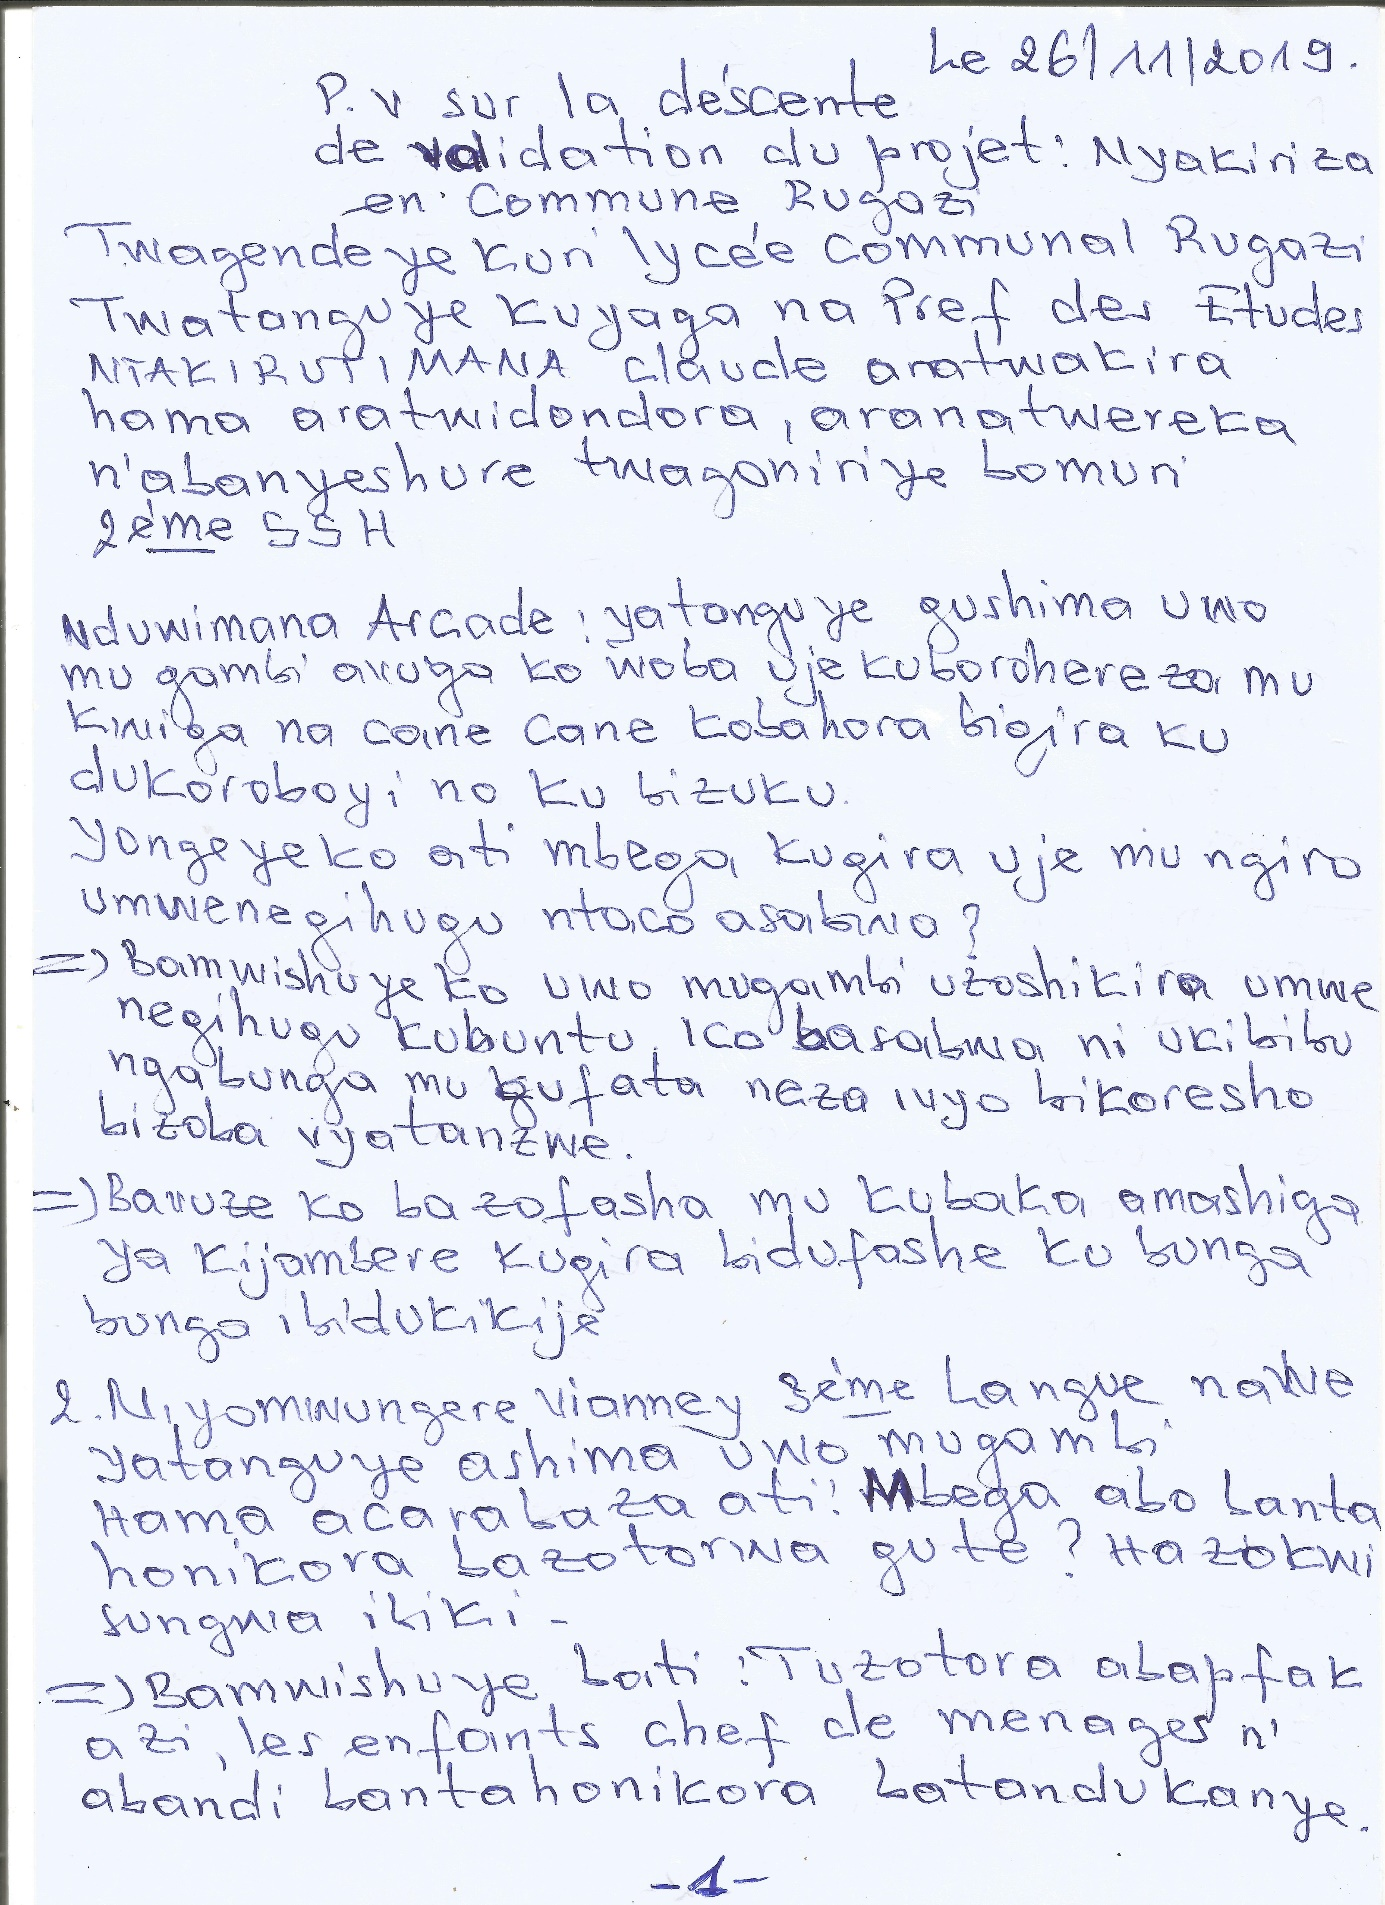 Le 26/11/2019.
P.v sur la déscente
de validation du projet: Nyakiriza
en Commune Rugazi
Twagendeye kuri lycée Communal Rugazi
Twatanguye kuyaga na Pref des Etudes
NTAKIRUTIMANA Claude aratwakira
hama aratwidondora, aranatwereka
n'abanyeshure twaganiriye bomuri
2ème SSH
Nduwimana Arcade: yatanguye gushima uwo
mugambi avuga ko woba uje kuborohereza mu
kwiga na cane cane kobahora bigira ku
dukoroboyi no ku bizuku.
Yongeyeko ati mbega kugira uje mu ngiro
umwenegihugu ntaco asabwa?
=> Bamwishuye ko uwo mugambi uzoshikira umwe
negihugu kubuntu, ico basabwa ni ukibibu
ngabunga mu gufata neza ivyo bikoresho
bizoba vyatanzwe.
=> Bavuze ko bazofasha mu kubaka amashiga
ya kijambere kugira bidufashe ku bunga
bunga ibidukikije
2. Niyomwungere Vianney 3ème Langue nawe
yatanguye ashima uwo mugambi
Hama acarabaza ati: Mbega abo banta
honikora bazotorwa gute? Hazokwi
sungwa ibiki -
=> Bamwishuye bati: Tuzotora abapfak
azi, les enfants chef de menages n'
abandi bantahonikora batandukanye.
-1-